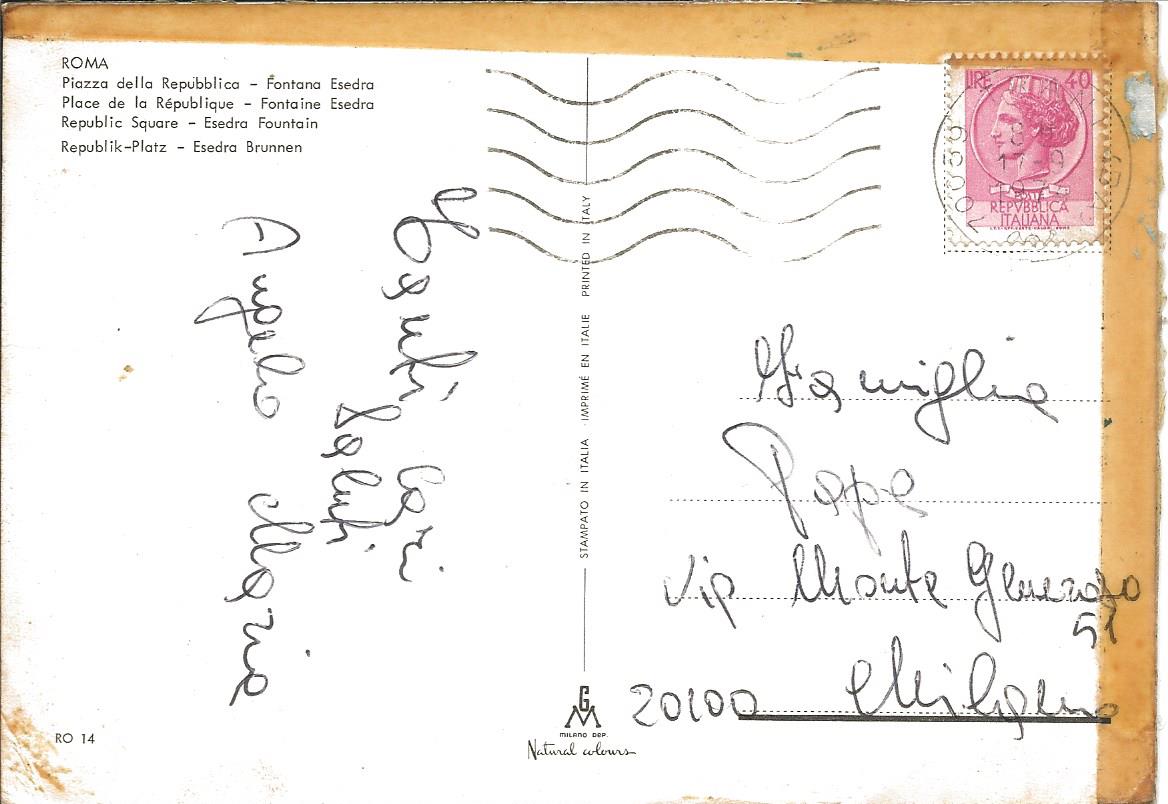 ROMA
Piazza della Repubblica – Fontana Esedra
Place de la République – Fontaine Esedra
Republic Square – Esedra Fountain
Republik-Platz – Esedra Brunnen
cari
Saluti
Angelo Maria
STAMPATO IN ITALIA · IMPRIMÉ EN ITALIE PRINTED IN ITALY
LIRE 40
POSTE
REPVBBLICA
ITALIANA
20039
17-9
Famiglia
Papa
Via Monte Generoso
51
20100 Milano
RO 14
GM
MILANO DEP.
Natural colours